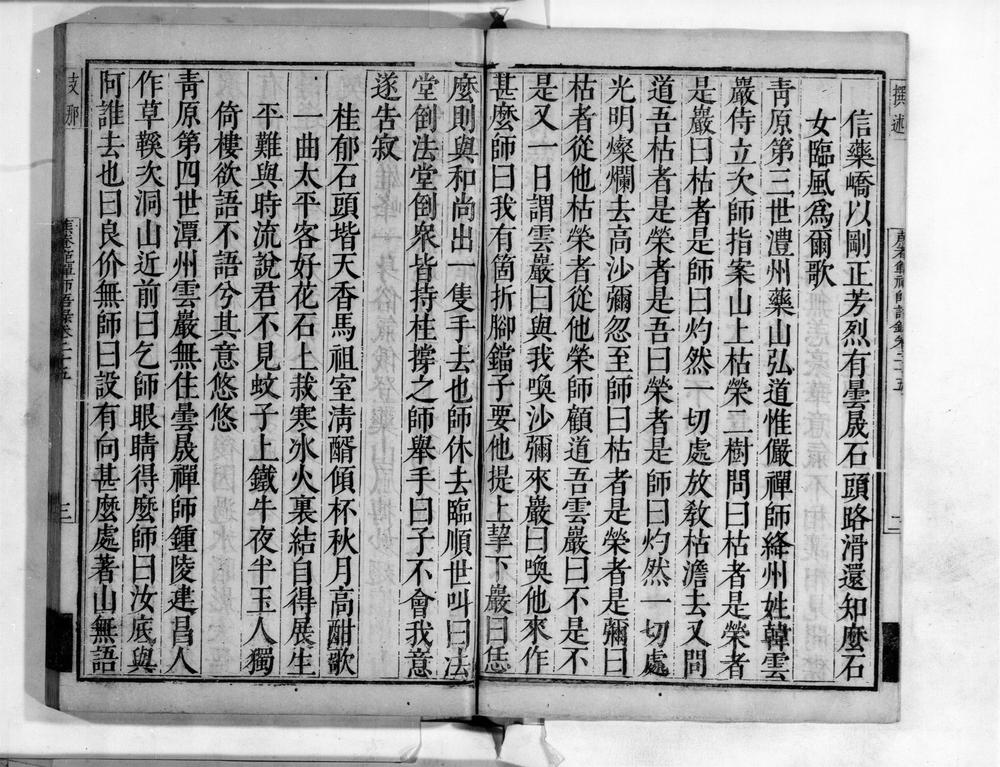 信藥嶠以剛正芳烈有曇晟石頭路滑還知麼石
女臨風爲爾歌
靑原第三世澧州藥山弘道惟儼禪師絳州姓韓雲
嚴侍立次師指案山上枯榮二樹問曰枯者是榮者
是嚴曰枯者是師曰灼然一切處放敎枯澹去又問
道吾枯者是榮者是吾曰榮者是師曰灼然一切處
光明燦爛去高沙彌忽至師曰枯者是榮者是彌曰
枯者從他枯榮者從他榮師顧道吾雲嚴曰不是不
是又一日謂雲嚴曰與我喚沙彌來嚴曰喚他來作
甚麼師曰我有箇折腳鐺子要他提上挈下嚴曰恁
麼則與和尚出一隻手去也師休去臨順世叫曰法
堂倒法堂倒衆皆持柱撐之師舉手曰子不會我意
遂吿寂
桂郁石頭堦天香馬祖室淸酳傾杯秋月高酣歌
一曲太平客好花石上栽寒冰火裏結自得展生
平難與時流說君不見蚊子上鐵牛夜半玉人獨
倚樓欲語不語兮其意悠悠
靑原第四世潭州雲嚴無住曇晟禪師鍾陵建昌人
作草鞵次洞山近前曰乞師眼睛得麼師曰汝底與
阿誰去也曰良价無師曰設有向甚麼處著山無語
支那
三
撰述
二